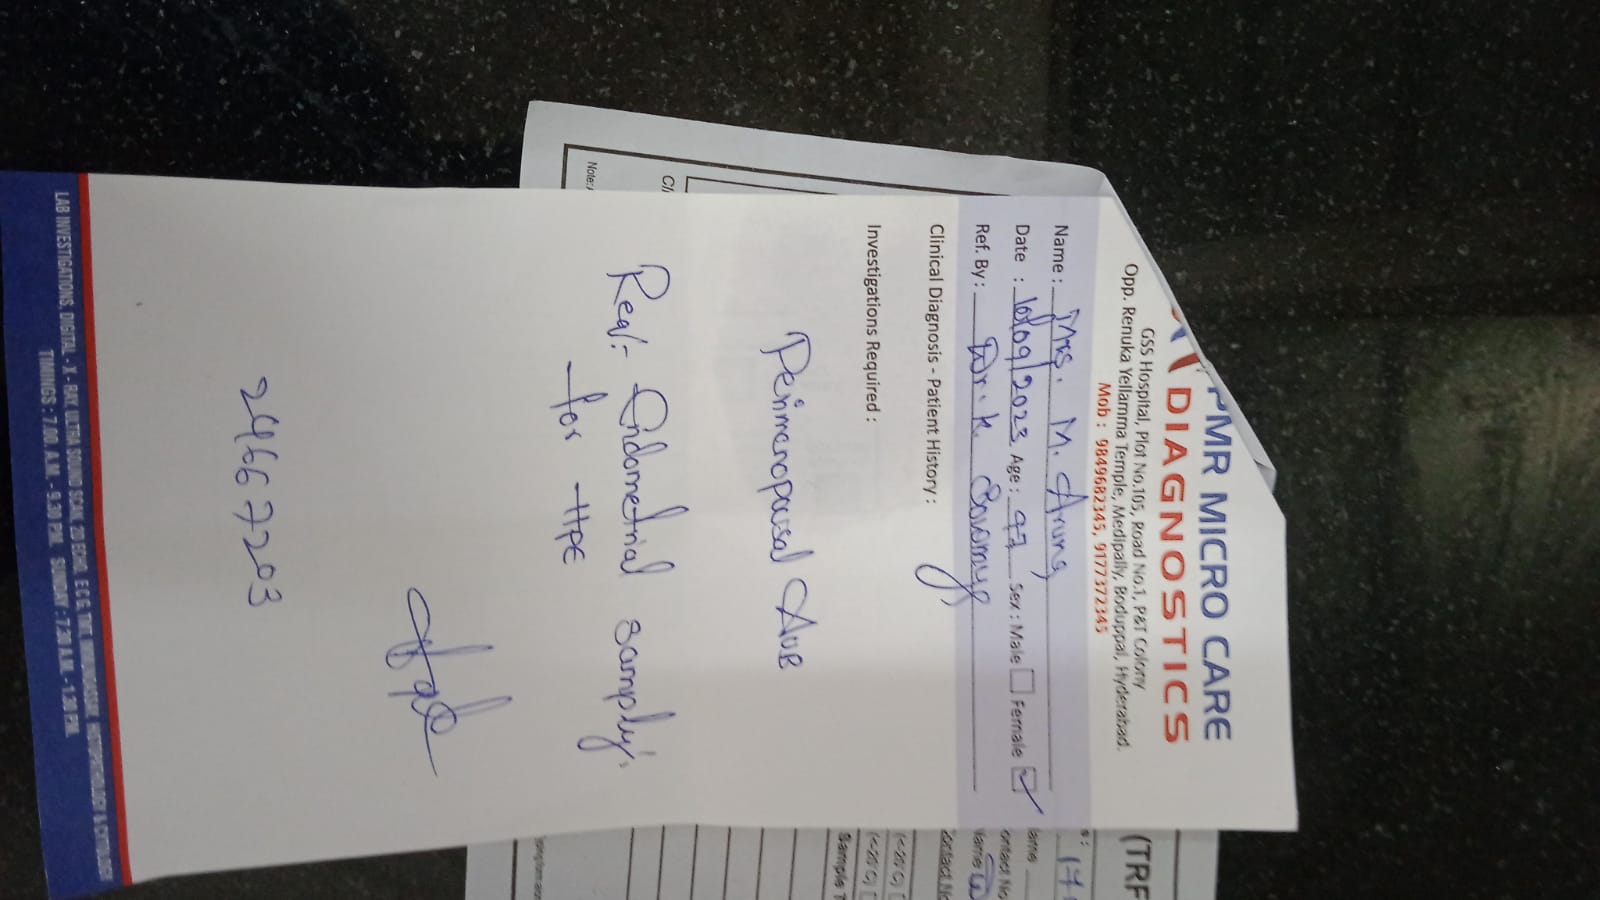 PMR MICRO CARE
DIAGNOSTICS
GSS Hospital, Plot No.105, Road No.1, P&T Colony
Opp. Renuka Yellamma Temple, Medipally, Boduppal, Hyderabad.
Mob : 9849682345, 9177372345
Name : Mrs. M. Aruna
Date : 10/09/2023 Age : 47 Sex : Male Female ✓
Ref. By : Dr. K. Sowmya
Clinical Diagnosis - Patient History :
Investigations Required :
Perimenopausal AUB
Endometrial
for HPE
24667203
LAB INVESTIGATIONS, DIGITAL - X - RAY, ULTRA SOUND SCAN, 2D ECHO, E.C.G, TMT, HISTOPATHOLOGY & CYTOLOGY
TIMINGS : 7.00. A.M. - 9.30 P.M. SUNDAY : 7.30 A.M. - 1.30 P.M.
(TRF
17
Sample T